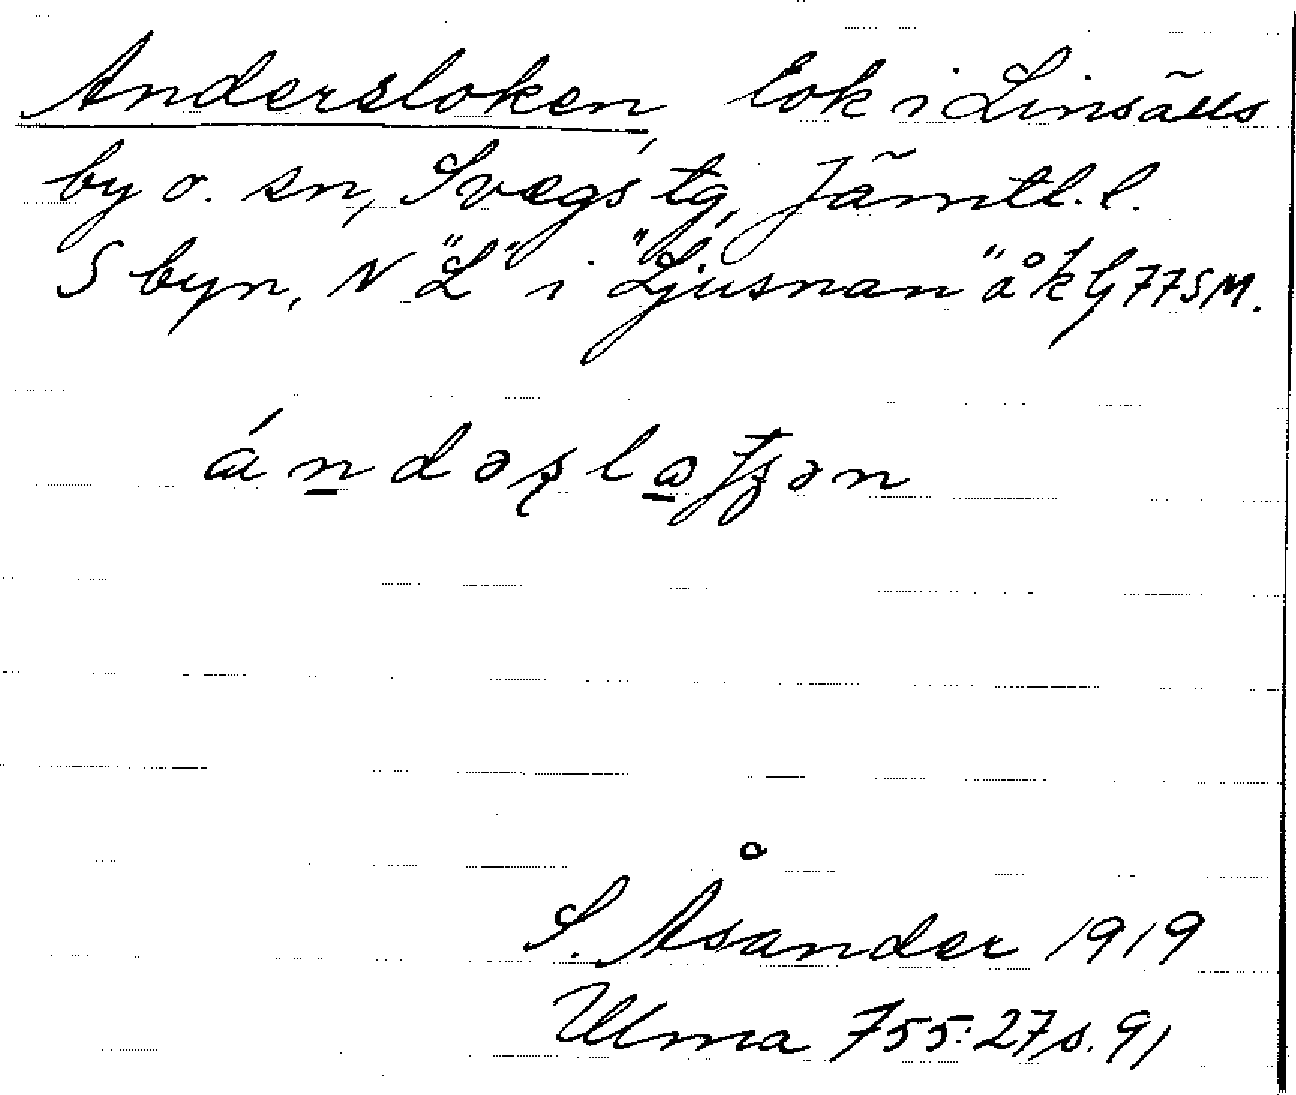 Andersloken, lok i Linsälls
by o. sn, Svegs tg, Jämtl. l.
S byn, N "L" i "Ljusnan" å k
S. Åsander 1919
Ulma 755:27 s. 91